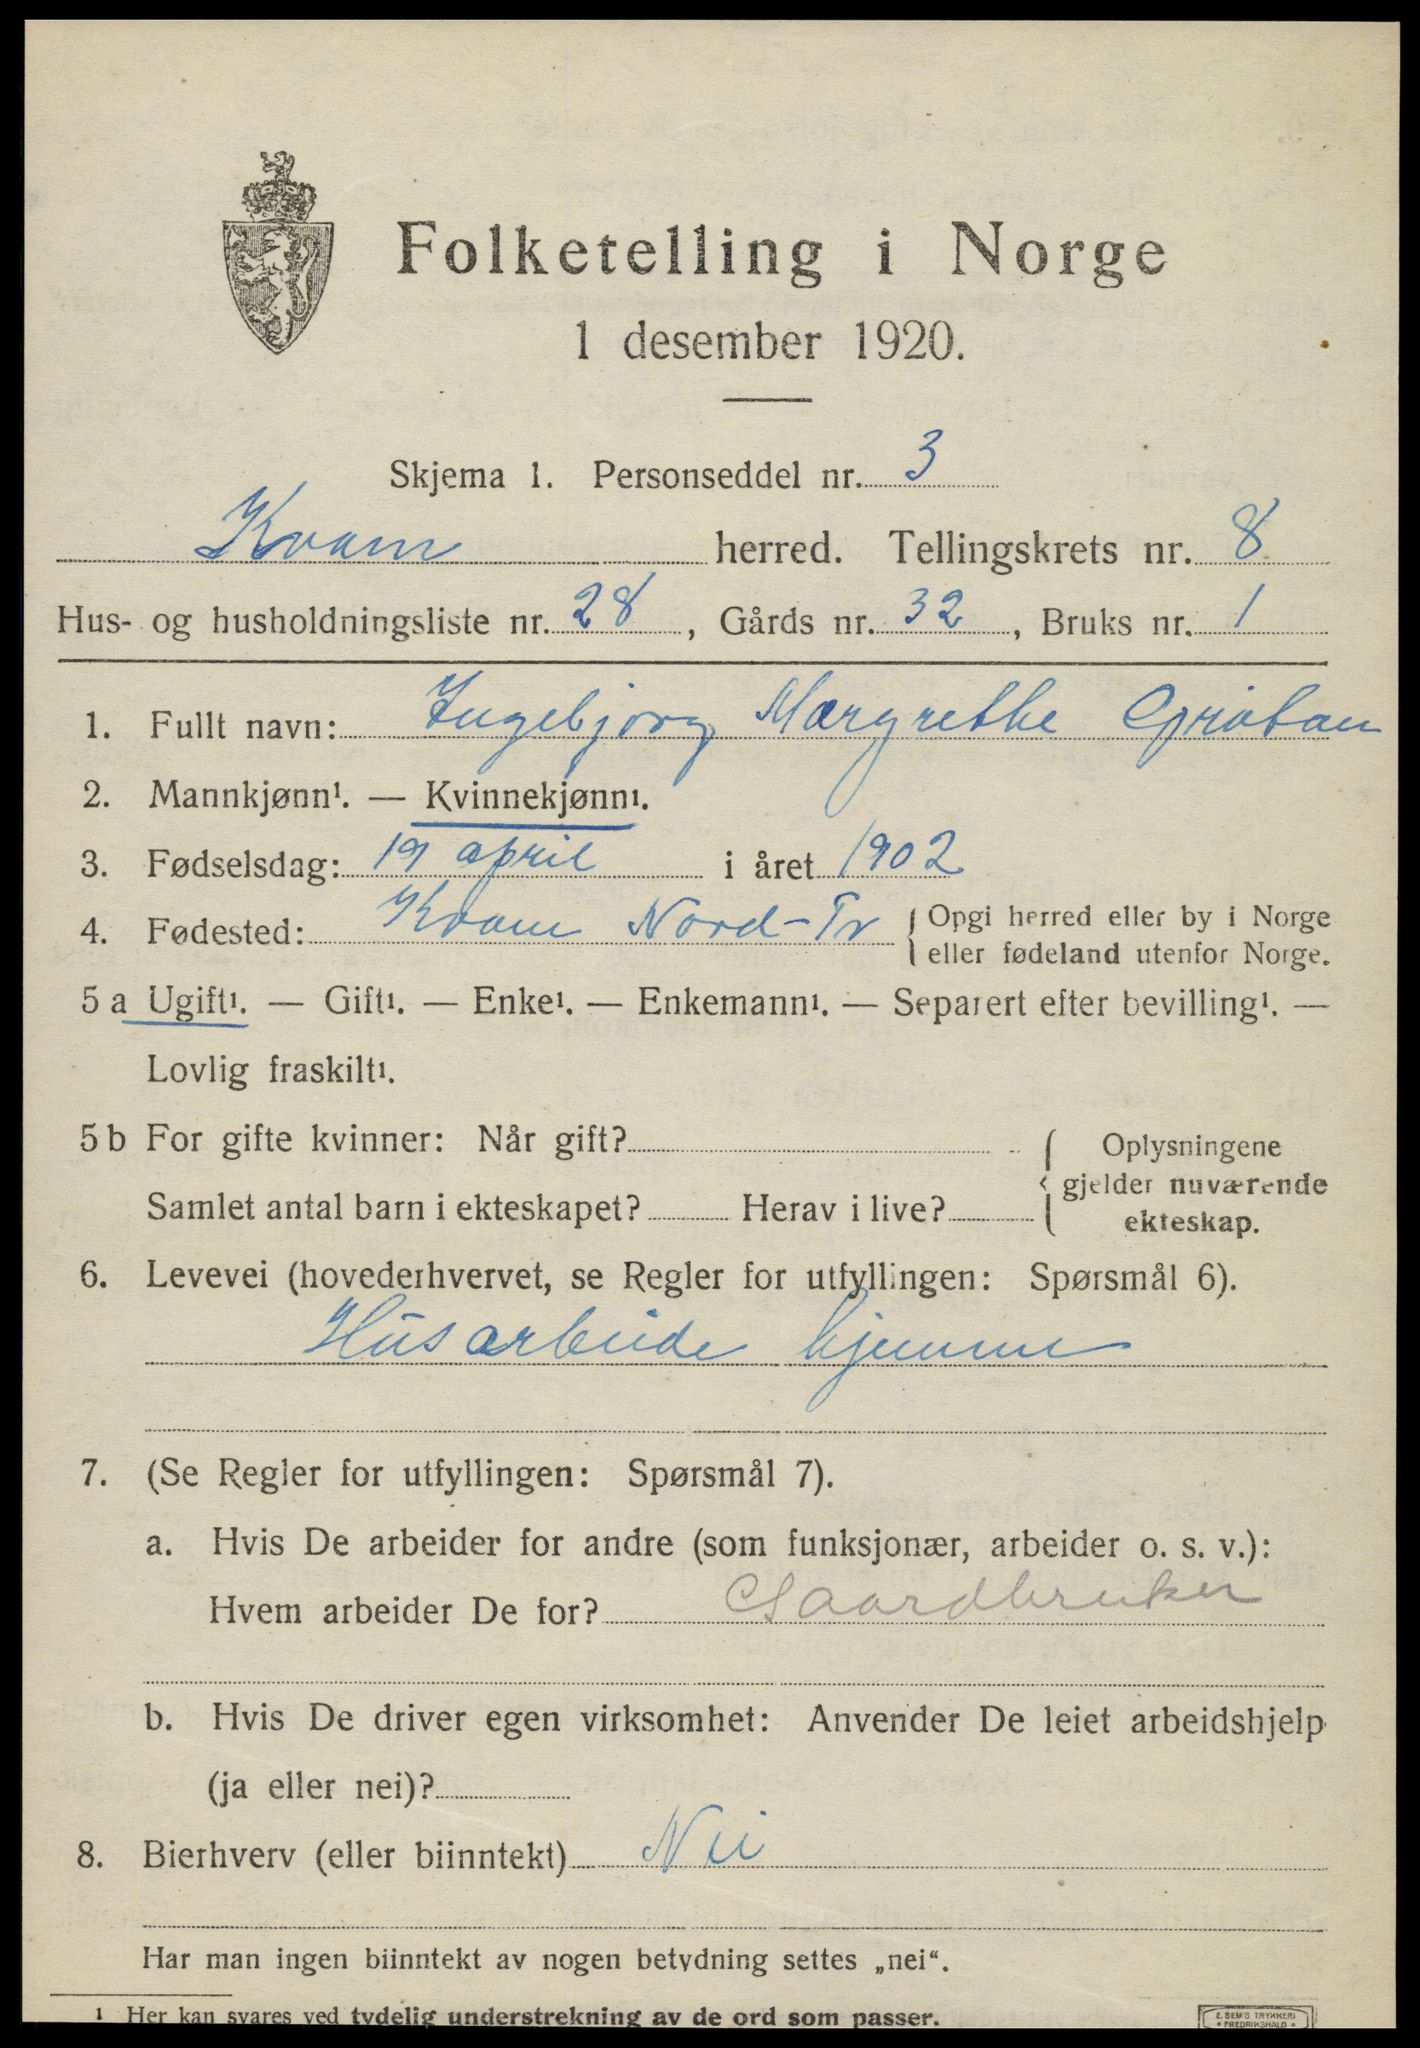 Folketelling i Norge
1 desember 1920.
Skjema 1. Personseddel nr. 3
Kvam herred. Tellingskrets nr. 8
Hus- og husholdningsliste nr. 28, Gårds nr. 32, Bruks nr. 1
1. Fullt navn: Ingebjorg Margrethe
2. Mannkjønn¹. — Kvinnekjønn¹.
3. Fødselsdag: 19 april i året 1902
4. Fødested: Kvam Nord-Tr { Opgi herred eller by i Norge
eller fødeland utenfor Norge.
5 a Ugift¹. — Gift¹. — Enke¹. — Enkemann¹. — Separert efter bevilling¹. —
Lovlig fraskilt¹.
5 b For gifte kvinner: Når gift? { Oplysningene
gjelder nuværende
Samlet antal barn i ekteskapet? Herav i live? ekteskap.
6. Levevei (hovederhvervet, se Regler for utfyllingen: Spørsmål 6).
Husarbeide hjemme
7. (Se Regler for utfyllingen: Spørsmål 7).
a. Hvis De arbeider for andre (som funksjonær, arbeider o. s. v.):
Hvem arbeider De for? Gaardbruker
b. Hvis De driver egen virksomhet: Anvender De leiet arbeidshjelp
(ja eller nei)?
8. Bierhverv (eller biinntekt) Nei
Har man ingen biinntekt av nogen betydning settes „nei“.
1 Her kan svares ved tydelig understrekning av de ord som passer.
E. SEM'S TRYKKERI
• FREDRIKSHALD •